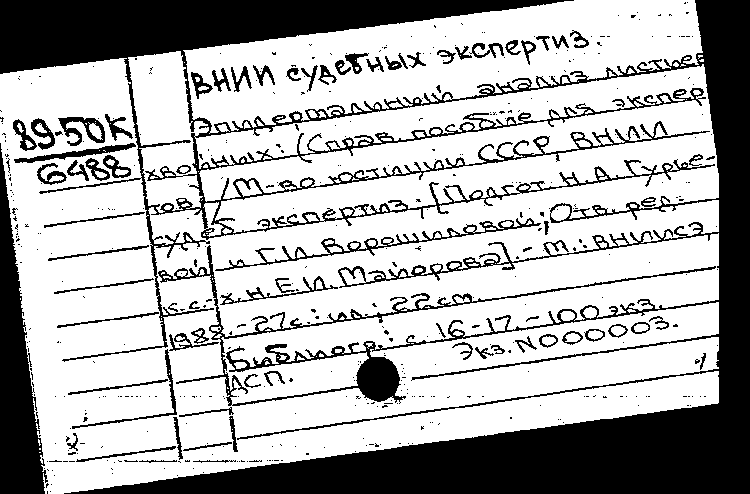 ВНИИ судебных экспертиз.
89-50К
6488
Эпидермальный анализ листьев
хвойных: (Справ. пособие для экспер
тов) / М-во юстиции СССР, ВНИИ
судеб экспертиз; [Подгот. Н.А. Гурье-
вой и Г.И. Ворошиловой; Отв. ред.
к.с.-х.н. Е.И. Майорова]. - М.: ВНИИСЭ,
1988. - 27с.: ил.; 22см.
Библиогр.: с. 16-17. - 100 экз.
ДСП. Экз. N000003.